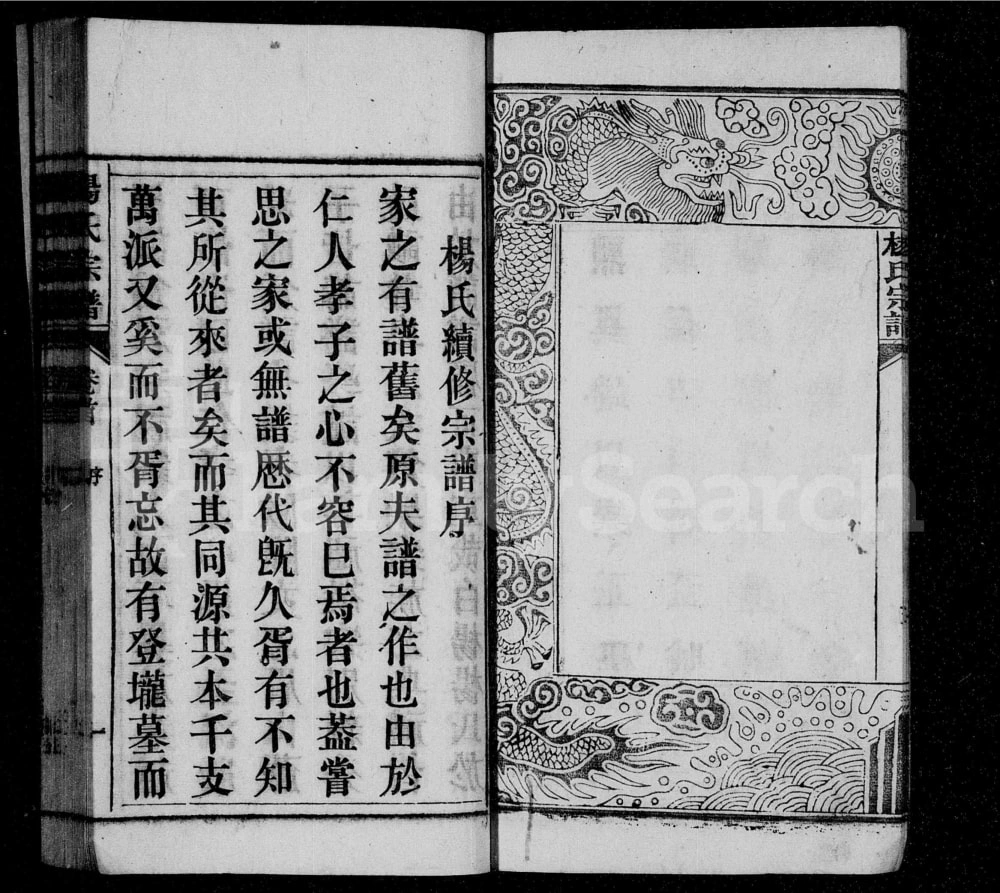 楊氏宗譜
楊氏續修宗譜序
家之有譜舊矣原夫譜之作也由於
仁人孝子之心不容已焉者也蓋嘗
思之家或無譜歴代旣久胥有不知
其所從來者矣而其同源共本千支
萬派又奚而不胥忘故有登壠墓而
楊氏宗譜
卷首
序
一